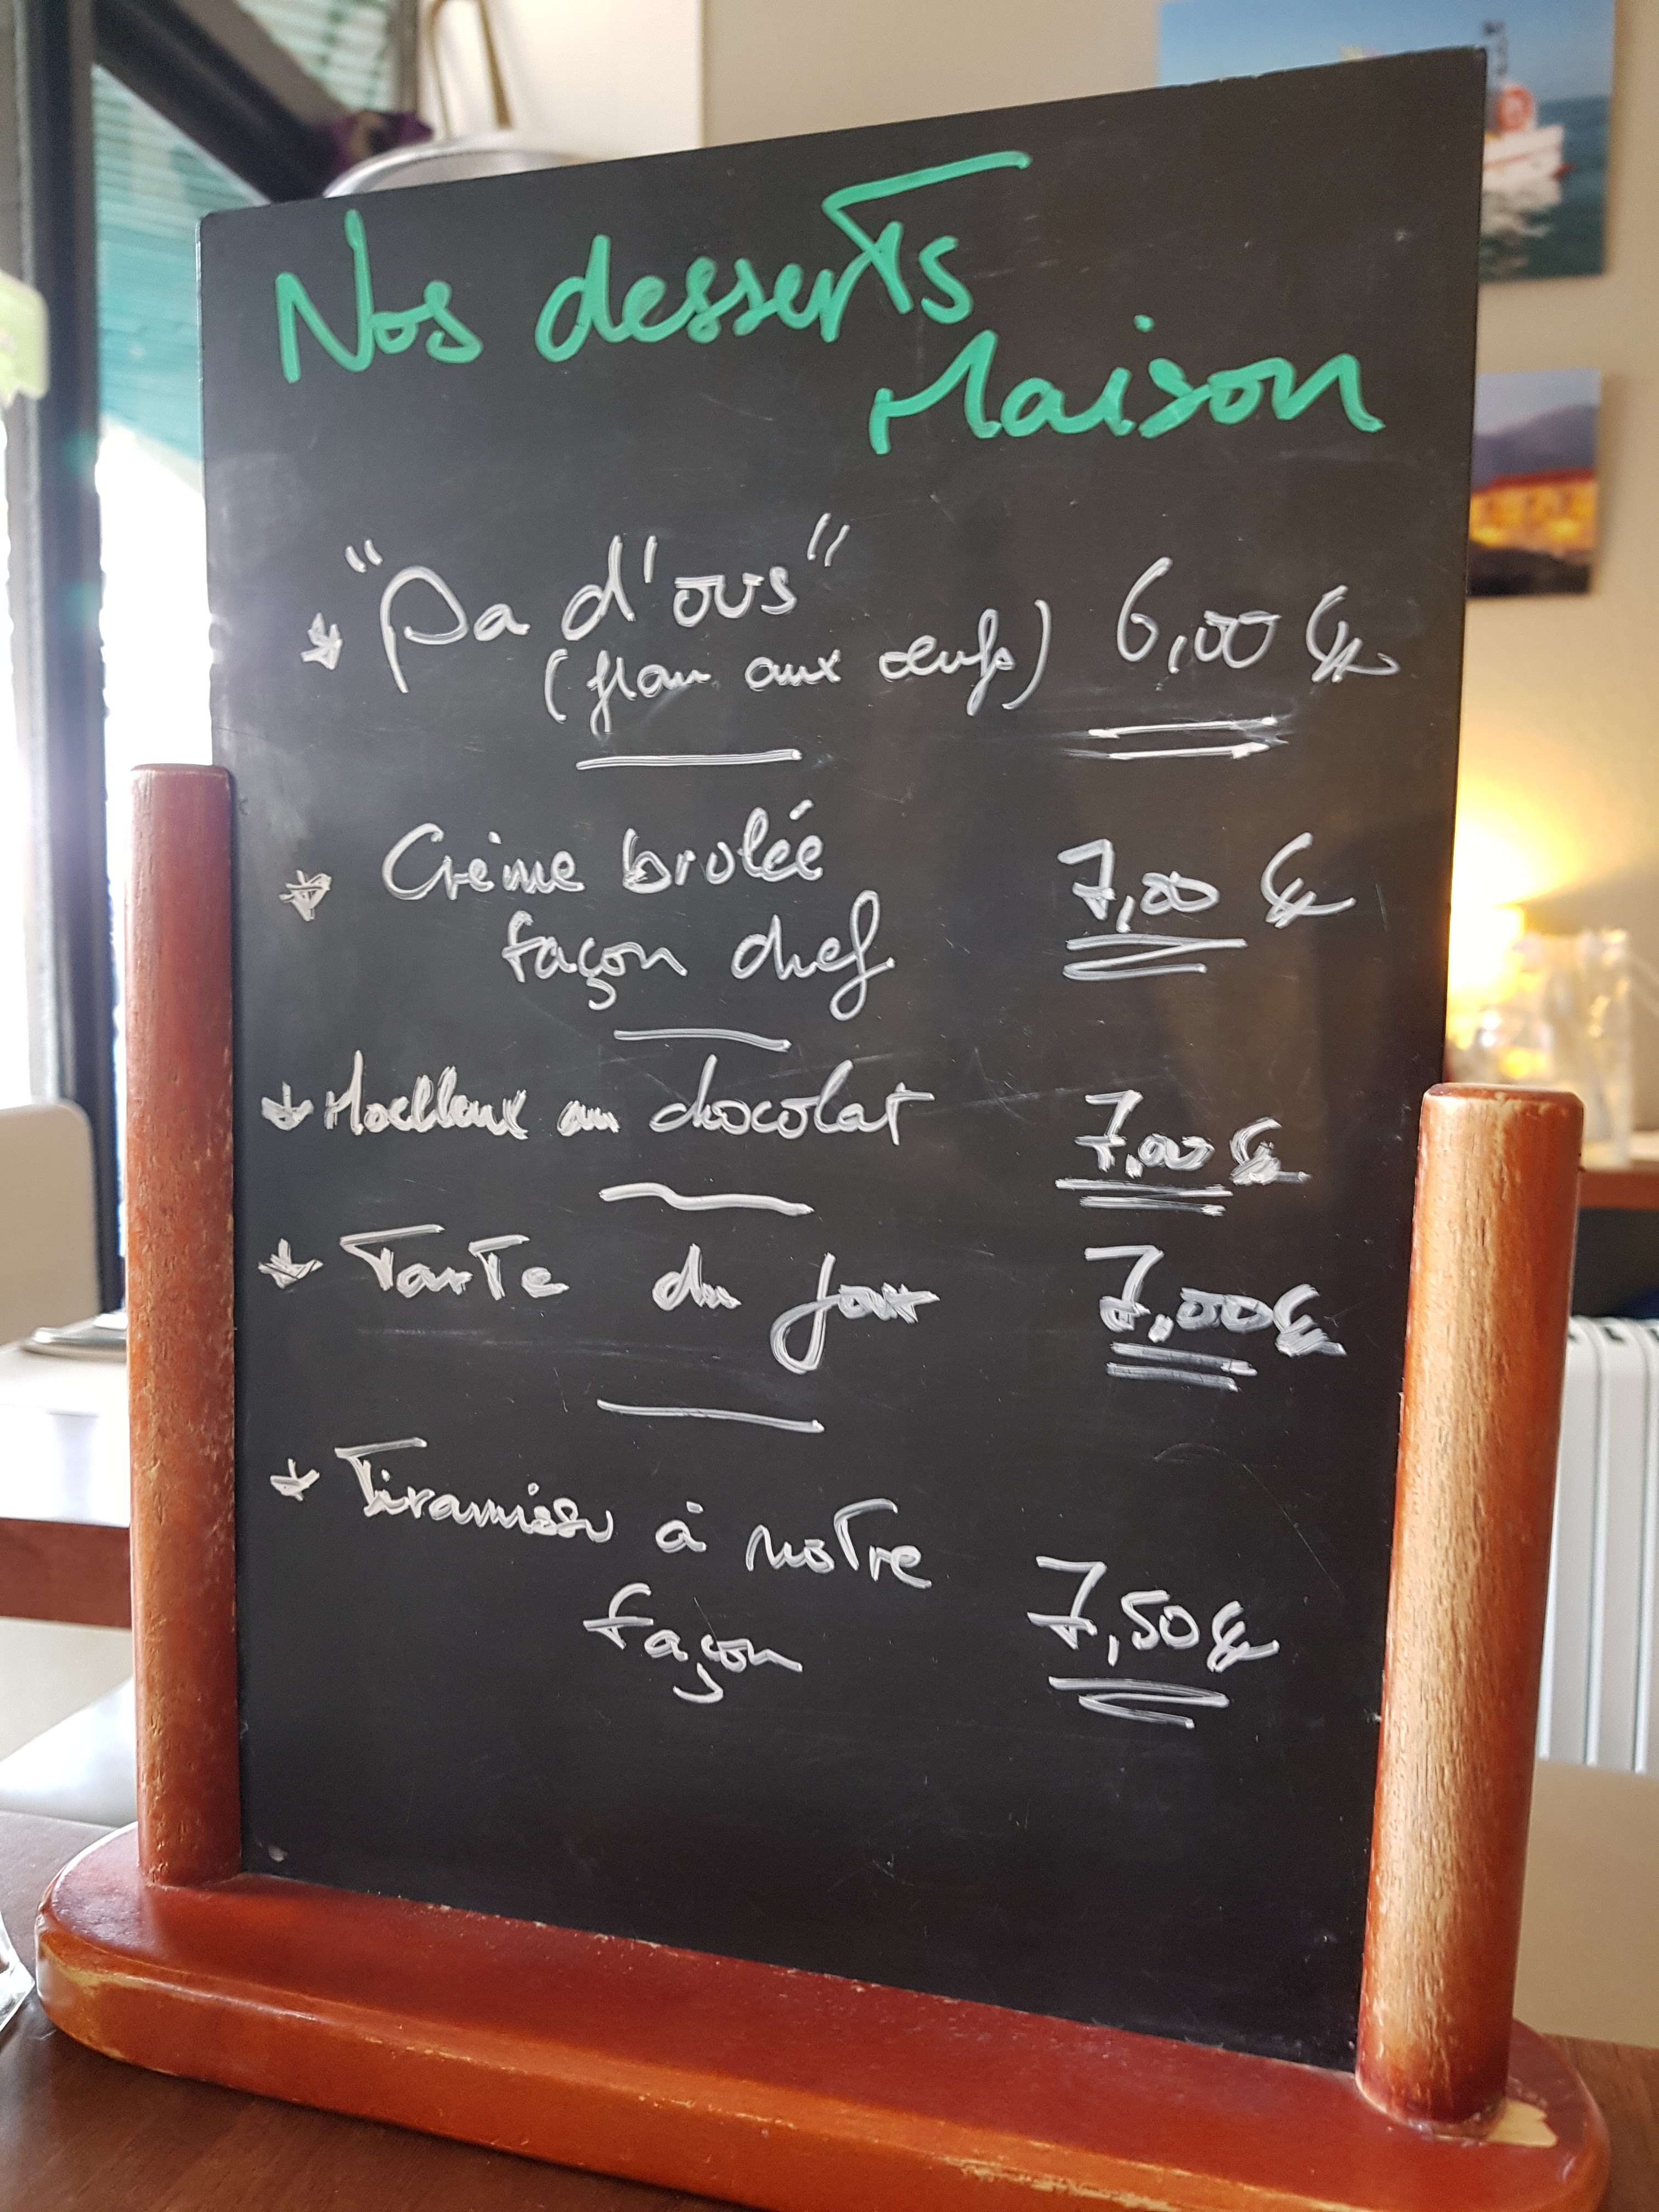 Nos desserts
Maison
"Pa d'ous"
(flan aux oeufs) 6,00 €
Crème brulée 7,00 €
façon chef
Moelleux au chocolat 7,00 €
Tarte du jour 7,00 €
Tiramisu à notre
façon 7,50 €